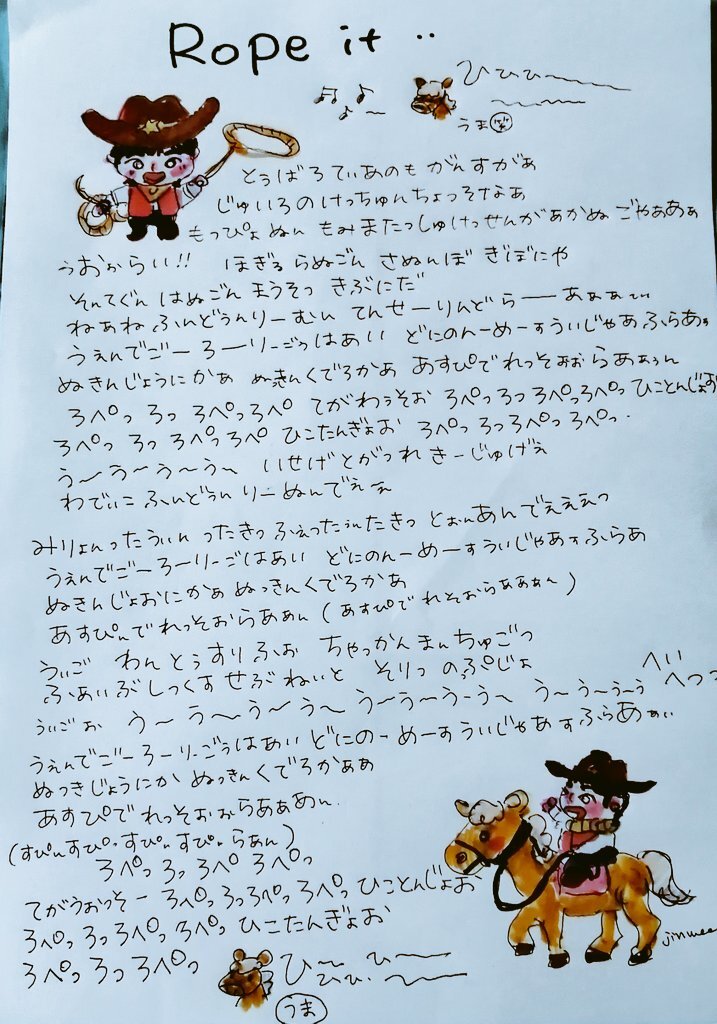 Rope it ..
ひひひ〜〜
うま
とぅばろてぃあのも がんすがぁ
じゅいろのけっちゅんちょっそなぁ
もっぴょぬん もみまたっしゅけっせんがあかぬ ごやぁあぁぁ
うおぉからい!! ほぎるらぬごん さぬんぼ ぎぼにや
そんてぐん はぬごん まうそっ きぶにだ
ねぁね ふんどぅんりーむん てんせーりんどらーあぁぁ〜
うぇんでごーろーりーごっはあい どにのんーめーすういじゃあふらあぁ
ぬきんじょうにかぁ ぬっきんくでろかあ あすぴでれっそおぉらあぁぅん
ろぺっ ろっ ろぺっろぺ てがわぅそお ろぺっろっろぺっろぺっ ひことんじょお
ろぺっ ろっ ろぺっろぺ ひこたんぎょお ろぺっろっろぺっろぺっ.
う〜う〜う〜う〜 いせげとがっれ きーじゅげぇ
わでぃこ ふんどぅん りーぬんでえぇ
みりょんったうぃん ったきっ ふぇったぅんたきっ とぉんあんでぇえぇっ
うぇんでごーろーりーごはあい どにのんーめーすういじゃあすふらあ
ぬきんじょおにかぁ ぬっきんくでろかあ
あすぴんでれっそおらあぁん (あすぴで れそおらあぁあん)
うぃご わんとぅすりふぉ ちゃっかんまんちゅごっ
ふぁいぶしっくすせぶねいと そりっ のぷじょ
へい
へっっ
ういごぉ う〜う〜う〜う〜 う〜う〜う〜う〜 う〜う〜う〜う
うぇんでごーろーりーごぅはあい どにのーめーすういじゃあすふらあぁい
ぬっきじょうにか ぬっきんくでろかあぁ
あすぴでれっそおぉらあぁあん.
(すぴんすぴ・すぴんすぴぃらあん)
ろぺっ ろっ ろぺ ろぺっ
てがうぉっそー ろぺっろっろぺっろぺっひことんじょお
ろぺっろっろぺっろぺっ ひこたんぎょお
ろぺっ ろっろぺっ
jinwee
ひ〜 ひ〜
ひひ、
うま